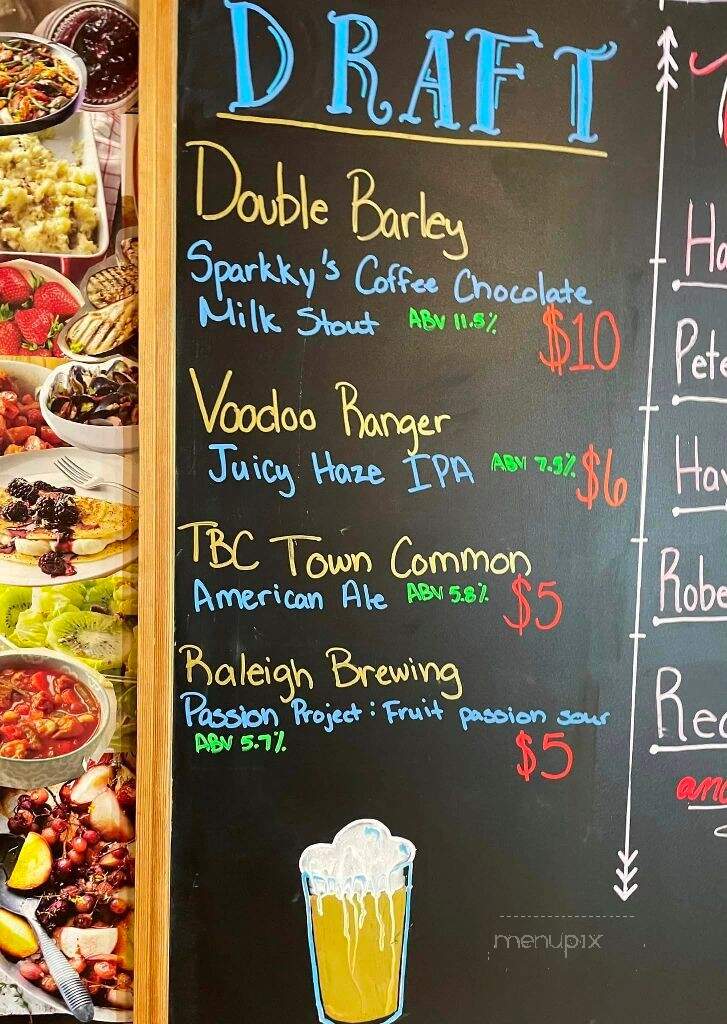 DRAFT
Double Barley
Sparkky's Coffee Chocolate
Milk Stout ABV 11.5%
$10
Voodoo Ranger
Juicy Haze IPA ABV 7.5% $6
TBC Town Common
American Ale ABV 5.8% $5
Raleigh Brewing
Passion Project: Fruit passion sour
ABV 5.7%
$5
Ha
Pete
Hav
Robe
Rec
and
menupix